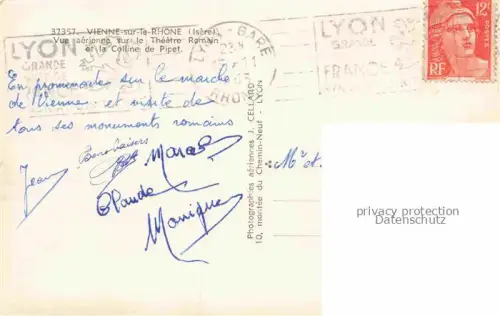 37357. VIENNE-sur-le-RHÔNE (Isère)
Vue aérienne sur le Théâtre Romain
et la Colline de Pipet.
LYON
GRANDE
LYON-GARE
RHÔNE
LYON
GRANDE
FRANCE
12F
RF
En promenade sur le marché
de Vienne et visite de
tous ses monuments romains
Bons baisers
Jean
Marcel
Claude
Monique
Photographies aériennes J. CELLARD
10, montée du Chemin-Neuf - LYON
Mr et
privacy protection
Datenschutz